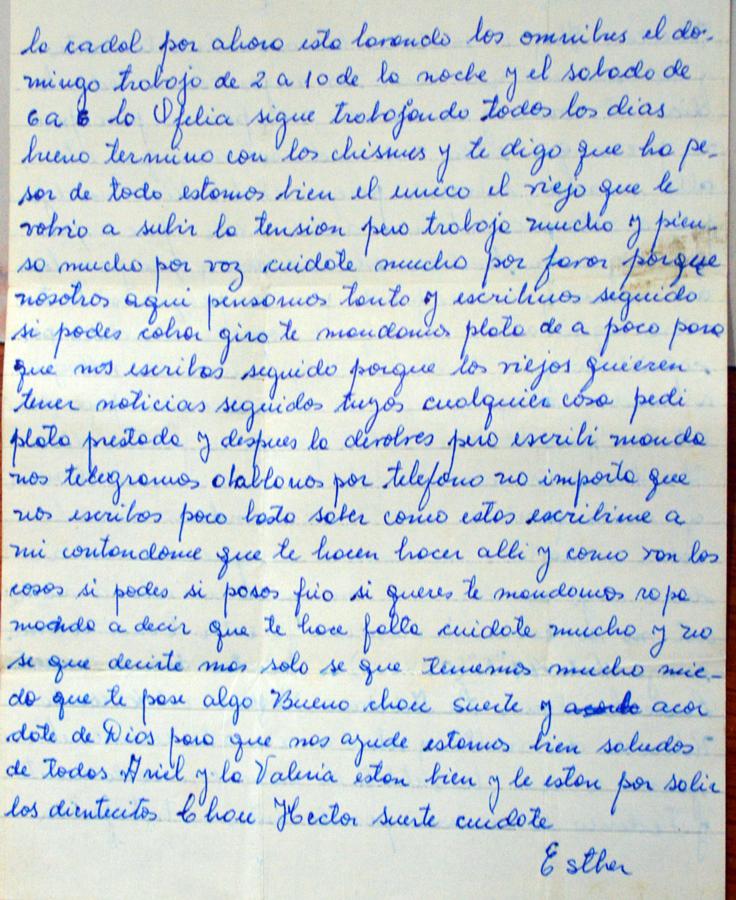 la cadal por ahora esta lavando los omnibus el do-
mingo trabajo de 2 a 10 de la noche y el sabado de
6 a 6 la Ofelia sigue trabajando todos los dias
bueno termino con los chismes y te digo que ha pe-
sar de todo estamos bien el unico el viejo que le
volvio a subir la tension pero trabaja mucho y pien-
sa mucho por voz cuidate mucho por favor porque
nosotros aqui pensamos tanto y escribinos seguido
si podes cobrar giro te mandamos plata de a poco para
que nos escribas seguido porque los viejos quieren
tener noticias seguidas tuyas cualquier cosa pedi
plata prestada y despues la devolves pero escribi manda
nos telegramas o hablanos por telefono no importa que
nos escribas poco basta saber como estas escribime a
mi contandome que te hacen hacer alli y como van las
cosas si podes si pasas frio si queres te mandamos ropa
manda a decir que te hace falta cuidate mucho y no
se que decirte mas solo se que tenemos mucho mie-
do que te pase algo Bueno chau suerte y acor
date de Dios para que nos ayude estamos bien saludos
de todos Ariel y la Valeria estan bien y le estan por salir
los dientecitos Chau Hector suerte cuidate
Esther